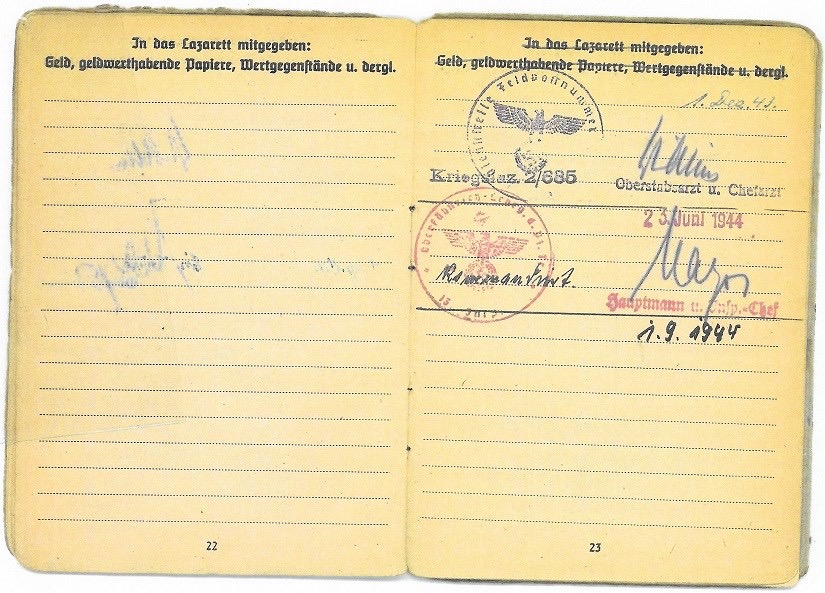 In das Lazarett mitgegeben:
Geld, geldwerthabende Papiere, Wertgegenstände u. dergl.
22
In das Lazarett mitgegeben:
Geld, geldwerthabende Papiere, Wertgegenstände u. dergl.
1. Dez. 43.
Feldpostnummer
Kriegslaz. 2/685
Oberstabsarzt u. Chefarzt
23. Juni 1944
Major
Hauptmann u. Insp.-Chef
1.9.1944
23